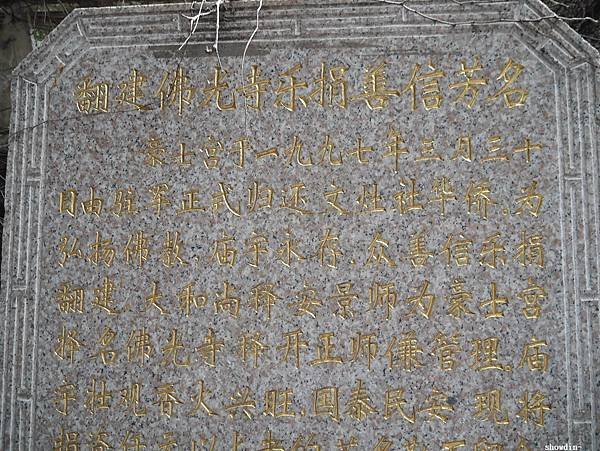 翻建佛光寺乐捐善信芳名
豪士宫于一九九七年三月三十
日由驻军正式归还文灶社华侨,为
弘扬佛教,庙宇永存,众善信乐捐
翻建,大和尚释安景师为豪士宫
择名佛光寺释开正师傔管理,庙
宇壮观香火兴旺,国泰民安现将
showdin~